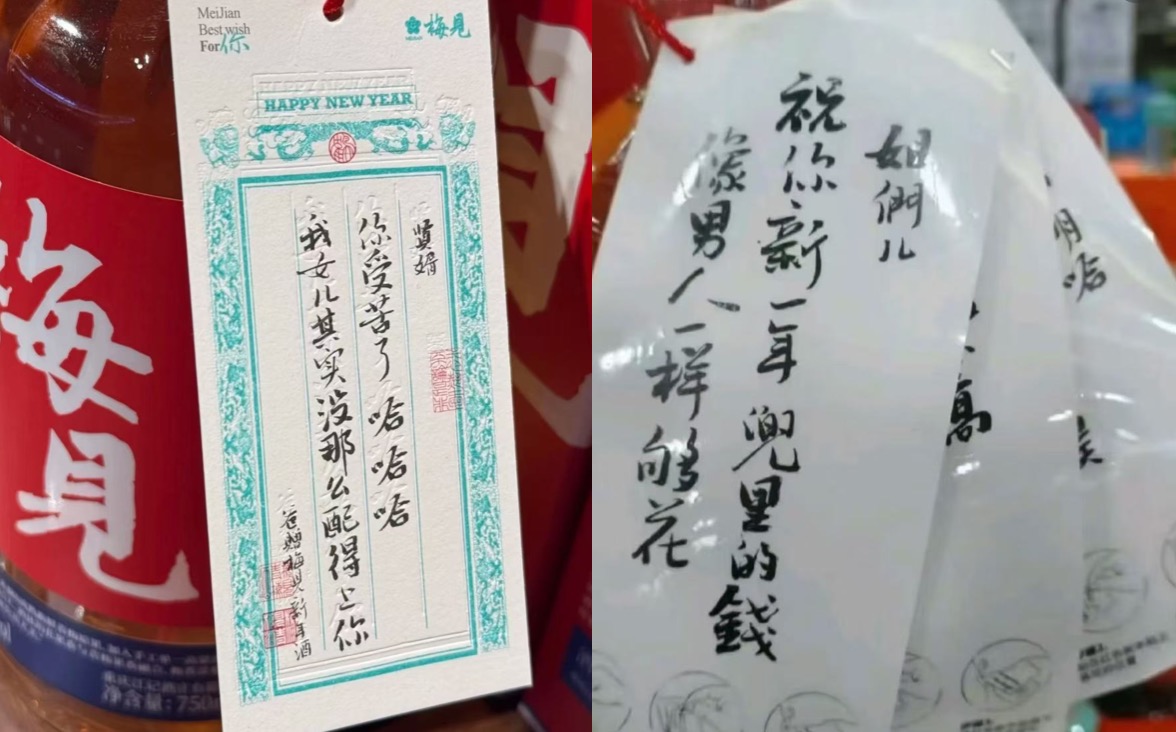 MeiJian
Best wish
For你
梅見
HAPPY NEW YEAR
賢婿
你受苦了哈哈哈
我女儿其实没那么配得上你
爸赠梅見新年酒
梅見
净含量:750
姐們儿
祝你新一年兜里的錢
像男人一样够花
高
哈